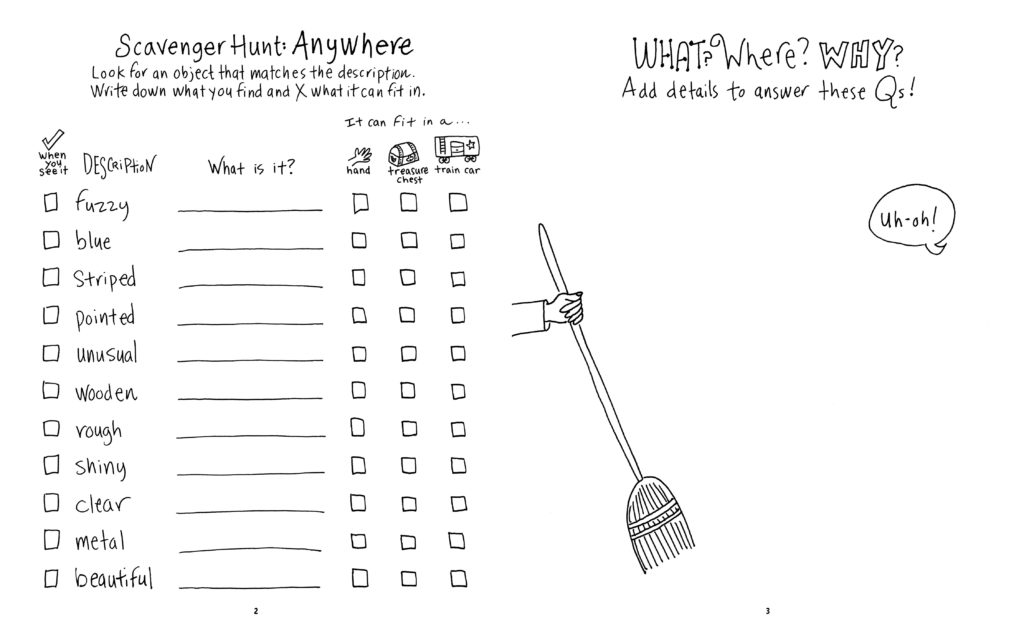 Scavenger Hunt: Anywhere
Look for an object that matches the description.
Write down what you find and X what it can fit in.
It can fit in a...
when
you
see it
DESCRIPTION
What is it?
hand
treasure
chest
train car
fuzzy
blue
Striped
pointed
unusual
wooden
rough
shiny
clear
metal
beautiful
2
WHAT? Where? WHY?
Add details to answer these Qs!
Uh-oh!
3